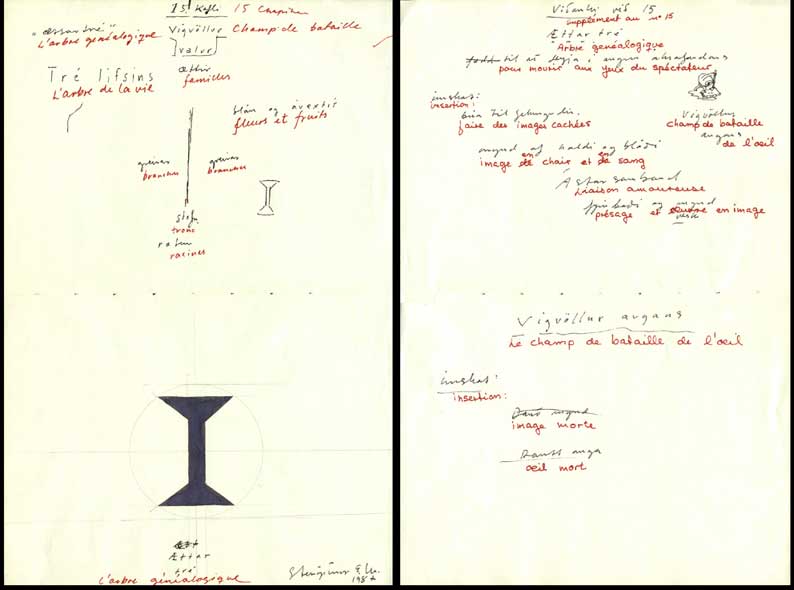 15 Kafli 15 Chapitre
"ættartré" Vígvöllur Champ de bataille
L'arbre généalogique
valur
Tré lífsins ættir
L'arbre de la vie familles
blóm og ávextir
fleurs et fruits
greinar greinar
branches branches
stofn
tronc
rætur
racines
Ættar
tré
L'arbre généalogique
198
Viðauki við 15
supplément au n° 15
Ættar tré
Arbre généalogique
til að deyja í augum áhorfandans
pour mourir aux yeux du spectateur
innskot:
insertion:
búa til
faire des images cachées
Vígvöllur
champ de bataille
augans
de l'œil
mynd af holdi og blóði
image en chair et en sang
Ástar samband
Liaison amoureuse
fyrirboði og mynd
présage et en image
Vígvöllur augans
Le champ de bataille de l'œil
innskot:
insertion:
Dauð mynd
image morte
Dautt auga
œil mort